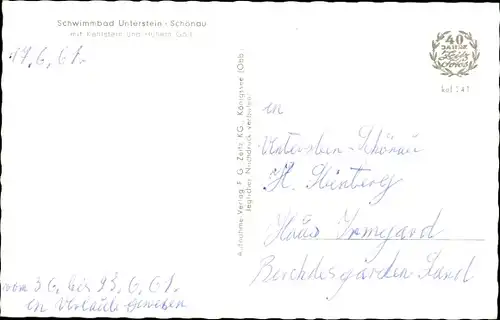 Schwimmbad Unterstein - Schönau
mit Kahlstein und Hohem Göll
17.6.61.
40
JAHRE
Zeitz
Fotos
kol 241
Aufnahme-Verlag F. G. Zeitz KG., Königssee (Obb.
Jeglicher Nachdruck verboten!
in
Unterstein-Schönau
H. Steinberg
Haus Irmgard
Berchdesgarden Land
vom 3 6. bis 23. 6. 61.
in Urlaub gewesen